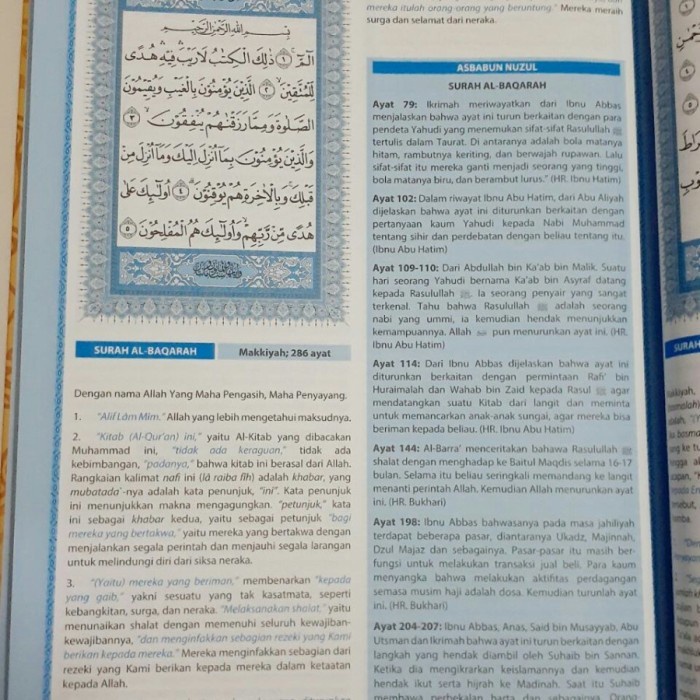 بِسْمِ اللهِ الرَّحْمٰنِ الرَّحِيْمِ
الٓمّٓ ۝١ ذٰلِكَ الْكِتٰبُ لَا رَيْبَ ۛ فِيْهِ ۛ هُدًى
لِّلْمُتَّقِيْنَ ۝٢ الَّذِيْنَ يُؤْمِنُوْنَ بِالْغَيْبِ وَيُقِيْمُوْنَ
الصَّلٰوةَ وَمِمَّا رَزَقْنٰهُمْ يُنْفِقُوْنَ ۝٣
وَالَّذِيْنَ يُؤْمِنُوْنَ بِمَآ اُنْزِلَ اِلَيْكَ وَمَآ اُنْزِلَ مِنْ
قَبْلِكَ وَبِالْاٰخِرَةِ هُمْ يُوْقِنُوْنَ ۝٤ اُولٰۤىِٕكَ عَلٰى
هُدًى مِّنْ رَّبِّهِمْ وَاُولٰۤىِٕكَ هُمُ الْمُفْلِحُوْنَ ۝٥
SURAH AL-BAQARAH Makkiyah; 286 ayat
Dengan nama Allah Yang Maha Pengasih, Maha Penyayang.
1. "Alif Lâm Mim." Allah yang lebih mengetahui maksudnya.
2. "Kitab (Al-Qur'an) ini," yaitu Al-Kitab yang dibacakan
Muhammad ini, "tidak ada keraguan," tidak ada
kebimbangan, "padanya," bahwa kitab ini berasal dari Allah.
Rangkaian kalimat nafi ini (lâ raiba fîh) adalah khabar, yang
mubatada'-nya adalah kata penunjuk, "ini". Kata penunjuk
ini menunjukkan makna mengagungkan. "petunjuk," kata
ini sebagai khabar kedua, yaitu sebagai petunjuk "bagi
mereka yang bertakwa," yaitu mereka yang bertakwa dengan
menjalankan segala perintah dan menjauhi segala larangan
untuk melindungi diri dari siksa neraka.
3. "(Yaitu) mereka yang beriman," membenarkan "kepada
yang gaib," yakni sesuatu yang tak kasatmata, seperti
kebangkitan, surga, dan neraka. "Melaksanakan shalat," yaitu
menunaikan shalat dengan memenuhi seluruh kewajiban-
kewajibannya, "dan menginfakkan sebagian rezeki yang Kami
berikan kepada mereka." Mereka menginfakkan sebagian dari
rezeki yang Kami berikan kepada mereka dalam ketaatan
kepada Allah.
mereka itulah orang-orang yang beruntung." Mereka meraih
surga dan selamat dari neraka.
ASBABUN NUZUL
SURAH AL-BAQARAH
Ayat 79: Ikrimah meriwayatkan dari Ibnu Abbas
menjelaskan bahwa ayat ini turun berkaitan dengan para
pendeta Yahudi yang menemukan sifat-sifat Rasulullah ﷺ
tertulis dalam Taurat. Di antaranya adalah bola matanya
hitam, rambutnya keriting, dan berwajah rupawan. Lalu
sifat-sifat itu mereka ganti menjadi seorang yang tinggi,
bola matanya biru, dan berambut lurus." (HR. Ibnu Hatim)
Ayat 102: Dalam riwayat Ibnu Abu Hatim, dari Abu Aliyah
dijelaskan bahwa ayat ini diturunkan berkaitan dengan
pertanyaan kaum Yahudi kepada Nabi Muhammad
tentang sihir dan perdebatan dengan beliau tentang itu.
(Ibnu Abu Hatim)
Ayat 109-110: Dari Abdullah bin Ka'ab bin Malik. Suatu
hari seorang Yahudi bernama Ka'ab bin Asyraf datang
kepada Rasulullah ﷺ. Ia seorang penyair yang sangat
terkenal. Tahu bahwa Rasulullah ﷺ adalah seorang
nabi yang ummi, ia kemudian hendak menunjukkan
kemampuannya. Allah pun menurunkan ayat ini. (HR.
Ibnu Abu Hatim)
Ayat 114: Dari Ibnu Abbas dijelaskan bahwa ayat ini
diturunkan berkaitan dengan permintaan Rafi' bin
Huraimalah dan Wahab bin Zaid kepada Rasul ﷺ agar
mendatangkan suatu Kitab dari langit dan meminta
untuk memancarkan anak-anak sungai, agar mereka bisa
beriman kepada beliau. (HR. Ibnu Abu Hatim)
Ayat 144: Al-Barra' menceritakan bahawa Rasulullah ﷺ
shalat dengan menghadap ke Baitul Maqdis selama 16-17
bulan. Selama itu beliau seringkali memandang ke langit
menanti perintah Allah. Kemudian Allah menurunkan ayat
ini. (HR. Bukhari)
Ayat 198: Ibnu Abbas bahwasanya pada masa jahiliyah
terdapat beberapa pasar, diantaranya Ukadz, Majinnah,
Dzul Majaz dan sebagainya. Pasar-pasar itu masih ber-
fungsi untuk melakukan transaksi jual beli. Para kaum
menyangka bahwa melakukan aktifitas perdagangan
semasa musim haji adalah dosa. Kemudian turunlah ayat
ini. (HR. Bukhari)
Ayat 204-207: Ibnu Abbas, Anas, Said bin Musayyab, Abu
Utsman dan Ikrimah bahwa ayat ini turun berkaitan dengan
langkah yang hendak diambil oleh Suhaib bin Sannan.
Ketika dia mengikrarkan keislamannya dan kemudian
hendak ikut serta hijrah ke Madinah. Saat itu Suhaib
membawa perbekalan harta dan sebagainya. Orang-
SURAH